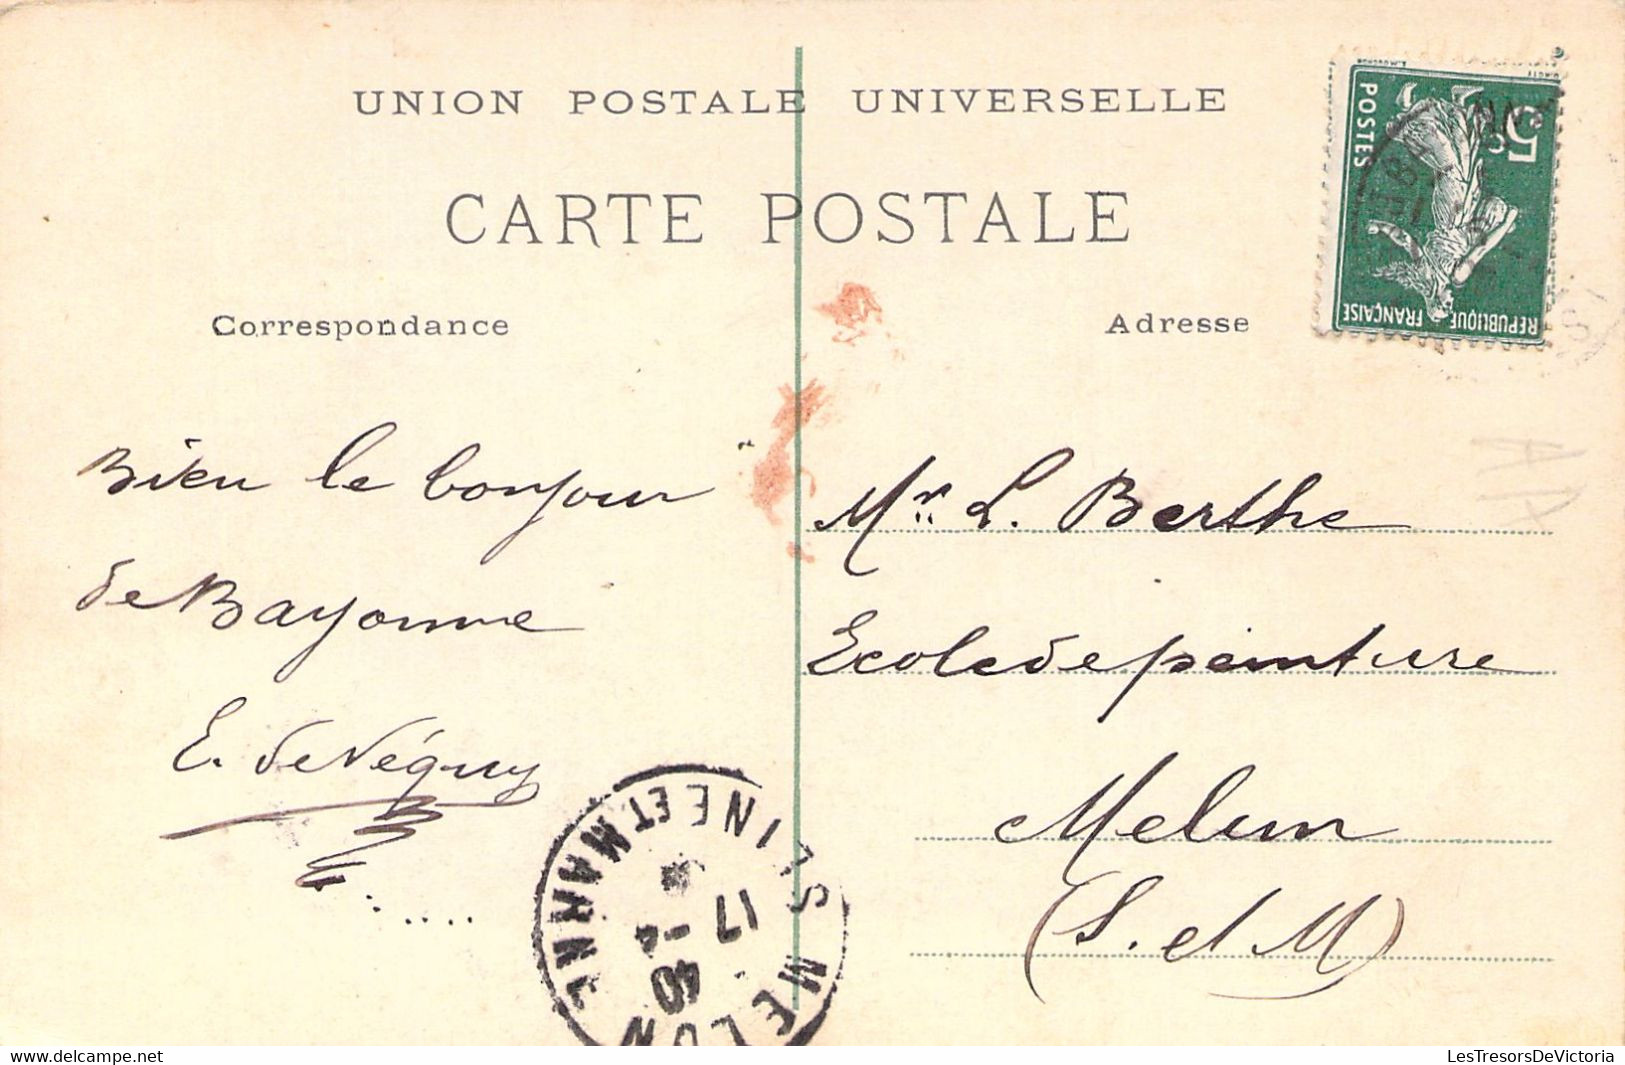 UNION POSTALE UNIVERSELLE
CARTE POSTALE
Correspondance
Adresse
5c
POSTES
REPUBLIQUE FRANÇAISE
Bien le bonjour
de Bayonne
E. de Néguy
Mr. L. Berthe
Ecole de peinture
Melun
(S. et M)
MELUN
SEINE ET MARNE
17
www.delcampe.net
LesTresorsDeVictoria